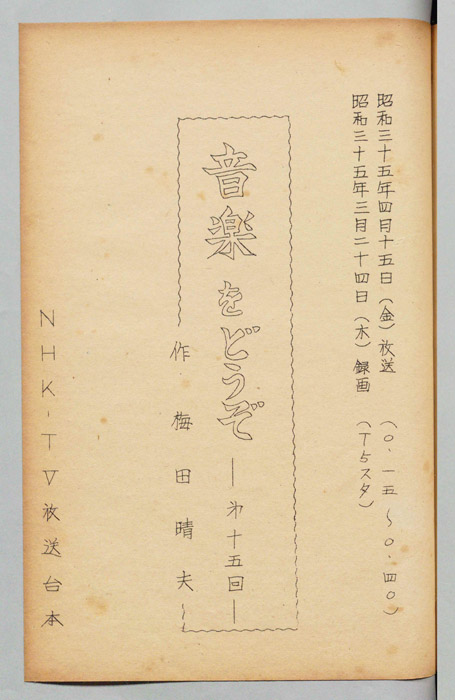 昭和三十五年四月十五日（金）放送　（〇．一五～〇．四〇）
昭和三十五年三月二十四日（木）録画　（T5スタ）
音楽をどうぞ―第十五回―
作　梅田晴夫
NHK-TV放送台本